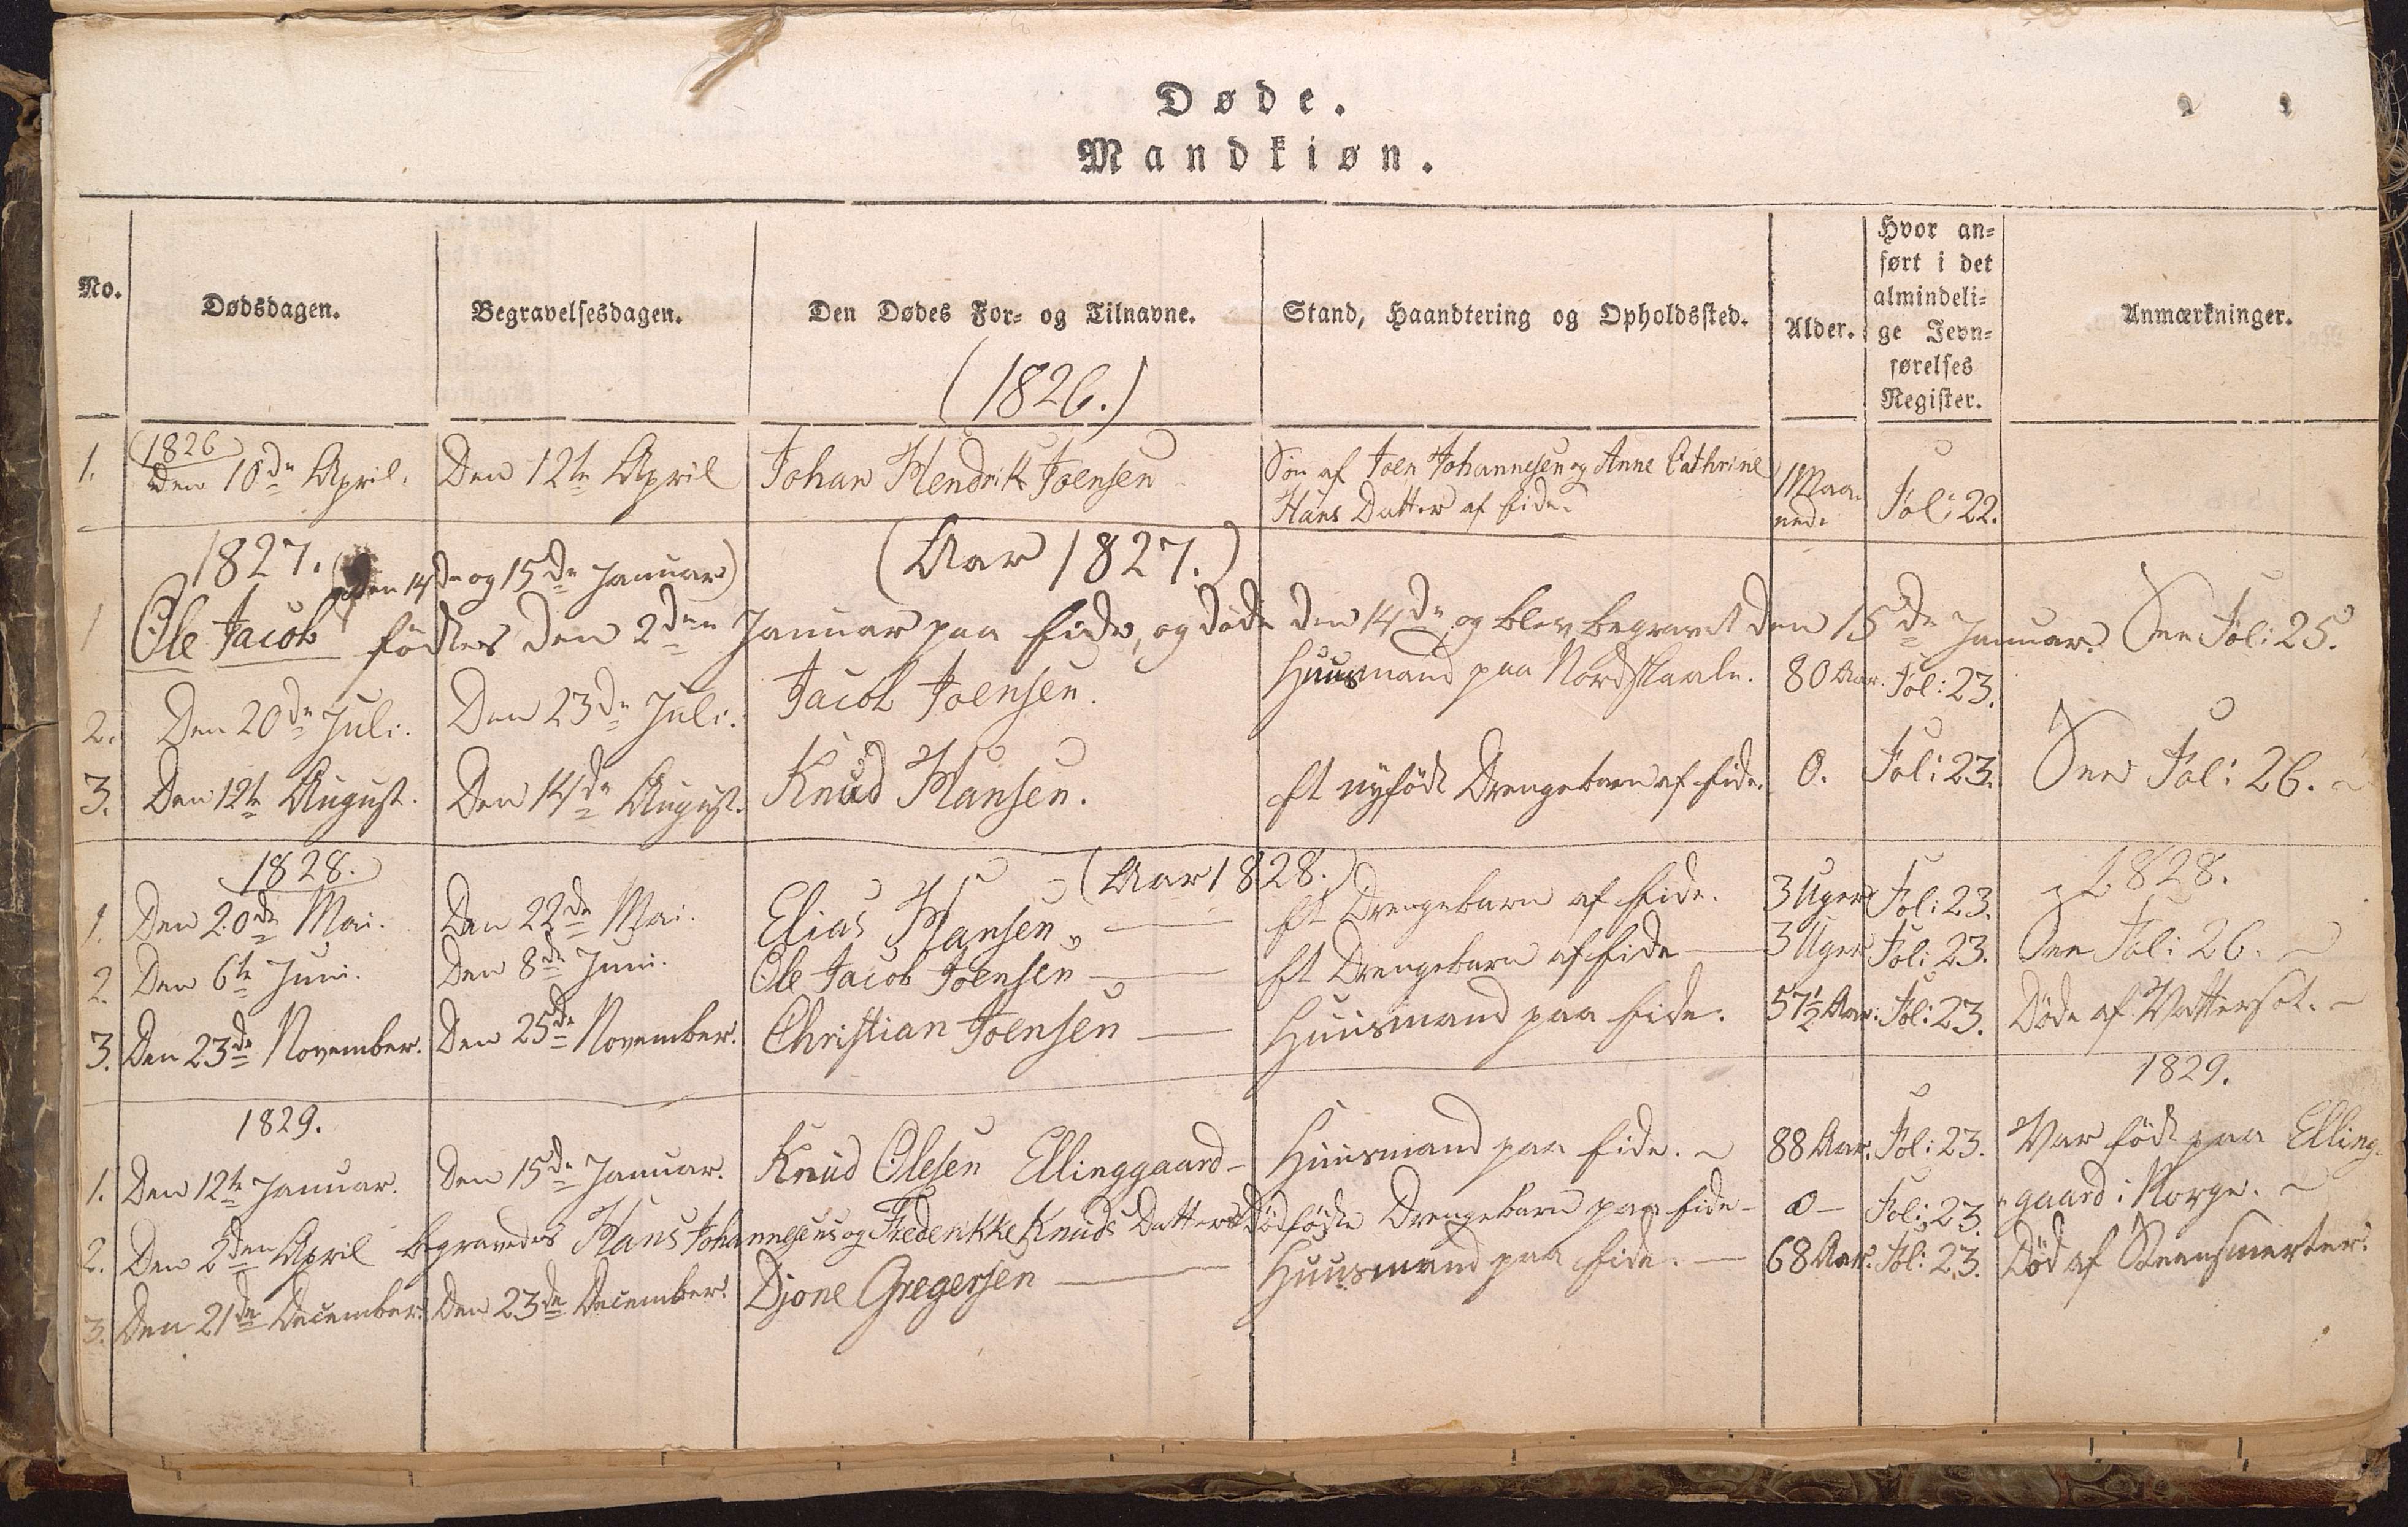 Døde.
Mandkiøn.
No.
Dødsdagen.
Begravelsesdagen.
Den Dødes For- og Tilnavne.
Stand, Haandtering og Opholdssted.
Alder.
Hvor an-
ført i det
almindeli-
ge Jevn-
førelses
Register.
Anmærkninger.
(1826.)
1. (1826) Den 10de April. Den 12te April Johan Hendrik Joensen Søn af Joen Johannesen og Anne Cathrine
Hans Datter af Eide. 1 Maa-
ned. Fol: 22.
1827. (Aar 1827.)
(den 14de og 15de Januar)
1 Ole Jacob fødtes den 2den Januar paa Eide, og døde den 14de og blev begravet den 15de Januar. See Fol: 25.
2. Den 20de Juli. Den 23de Juli. Jacob Joensen. Huusmand paa Nordskaale. 80 Aar. Fol: 23.
3. Den 12te August. Den 14de August. Knud Hansen. Et nyfødt Drengebarn af Eide. 0. Fol: 23. See Fol: 26.
1828. (Aar 1828.) 1828.
1. Den 20de Mai. Den 22de Mai. Elias Hansen. — Et Drengebarn af Eide. 3 Uger Fol: 23.
2. Den 6te Juni. Den 8de Juni. Ole Jacob Joensen — Et Drengebarn af Eide — 3 Uger Fol: 23. See Fol: 26.
3. Den 23de November. Den 25de November. Christian Joensen — Huusmand paa Eide. 57½ Aar. Fol: 23. Døde af Vattersot.
1829. 1829.
1. Den 12te Januar. Den 15de Januar. Knud Olesen Ellinggaard — Huusmand paa Eide. 88 Aar. Fol: 23. Var født paa Elling-
gaard i Norge.
2. Den 2den April begravedes Hans Johannesens og Frederikke Knuds Datters Dødfødte Drengebarn paa Eide — 0 — Fol: 23.
3. Den 21de December. Den 23de December. Djone Gregersen — Huusmand paa Eide. — 68 Aar. Fol: 23. Død af Steensmerter.